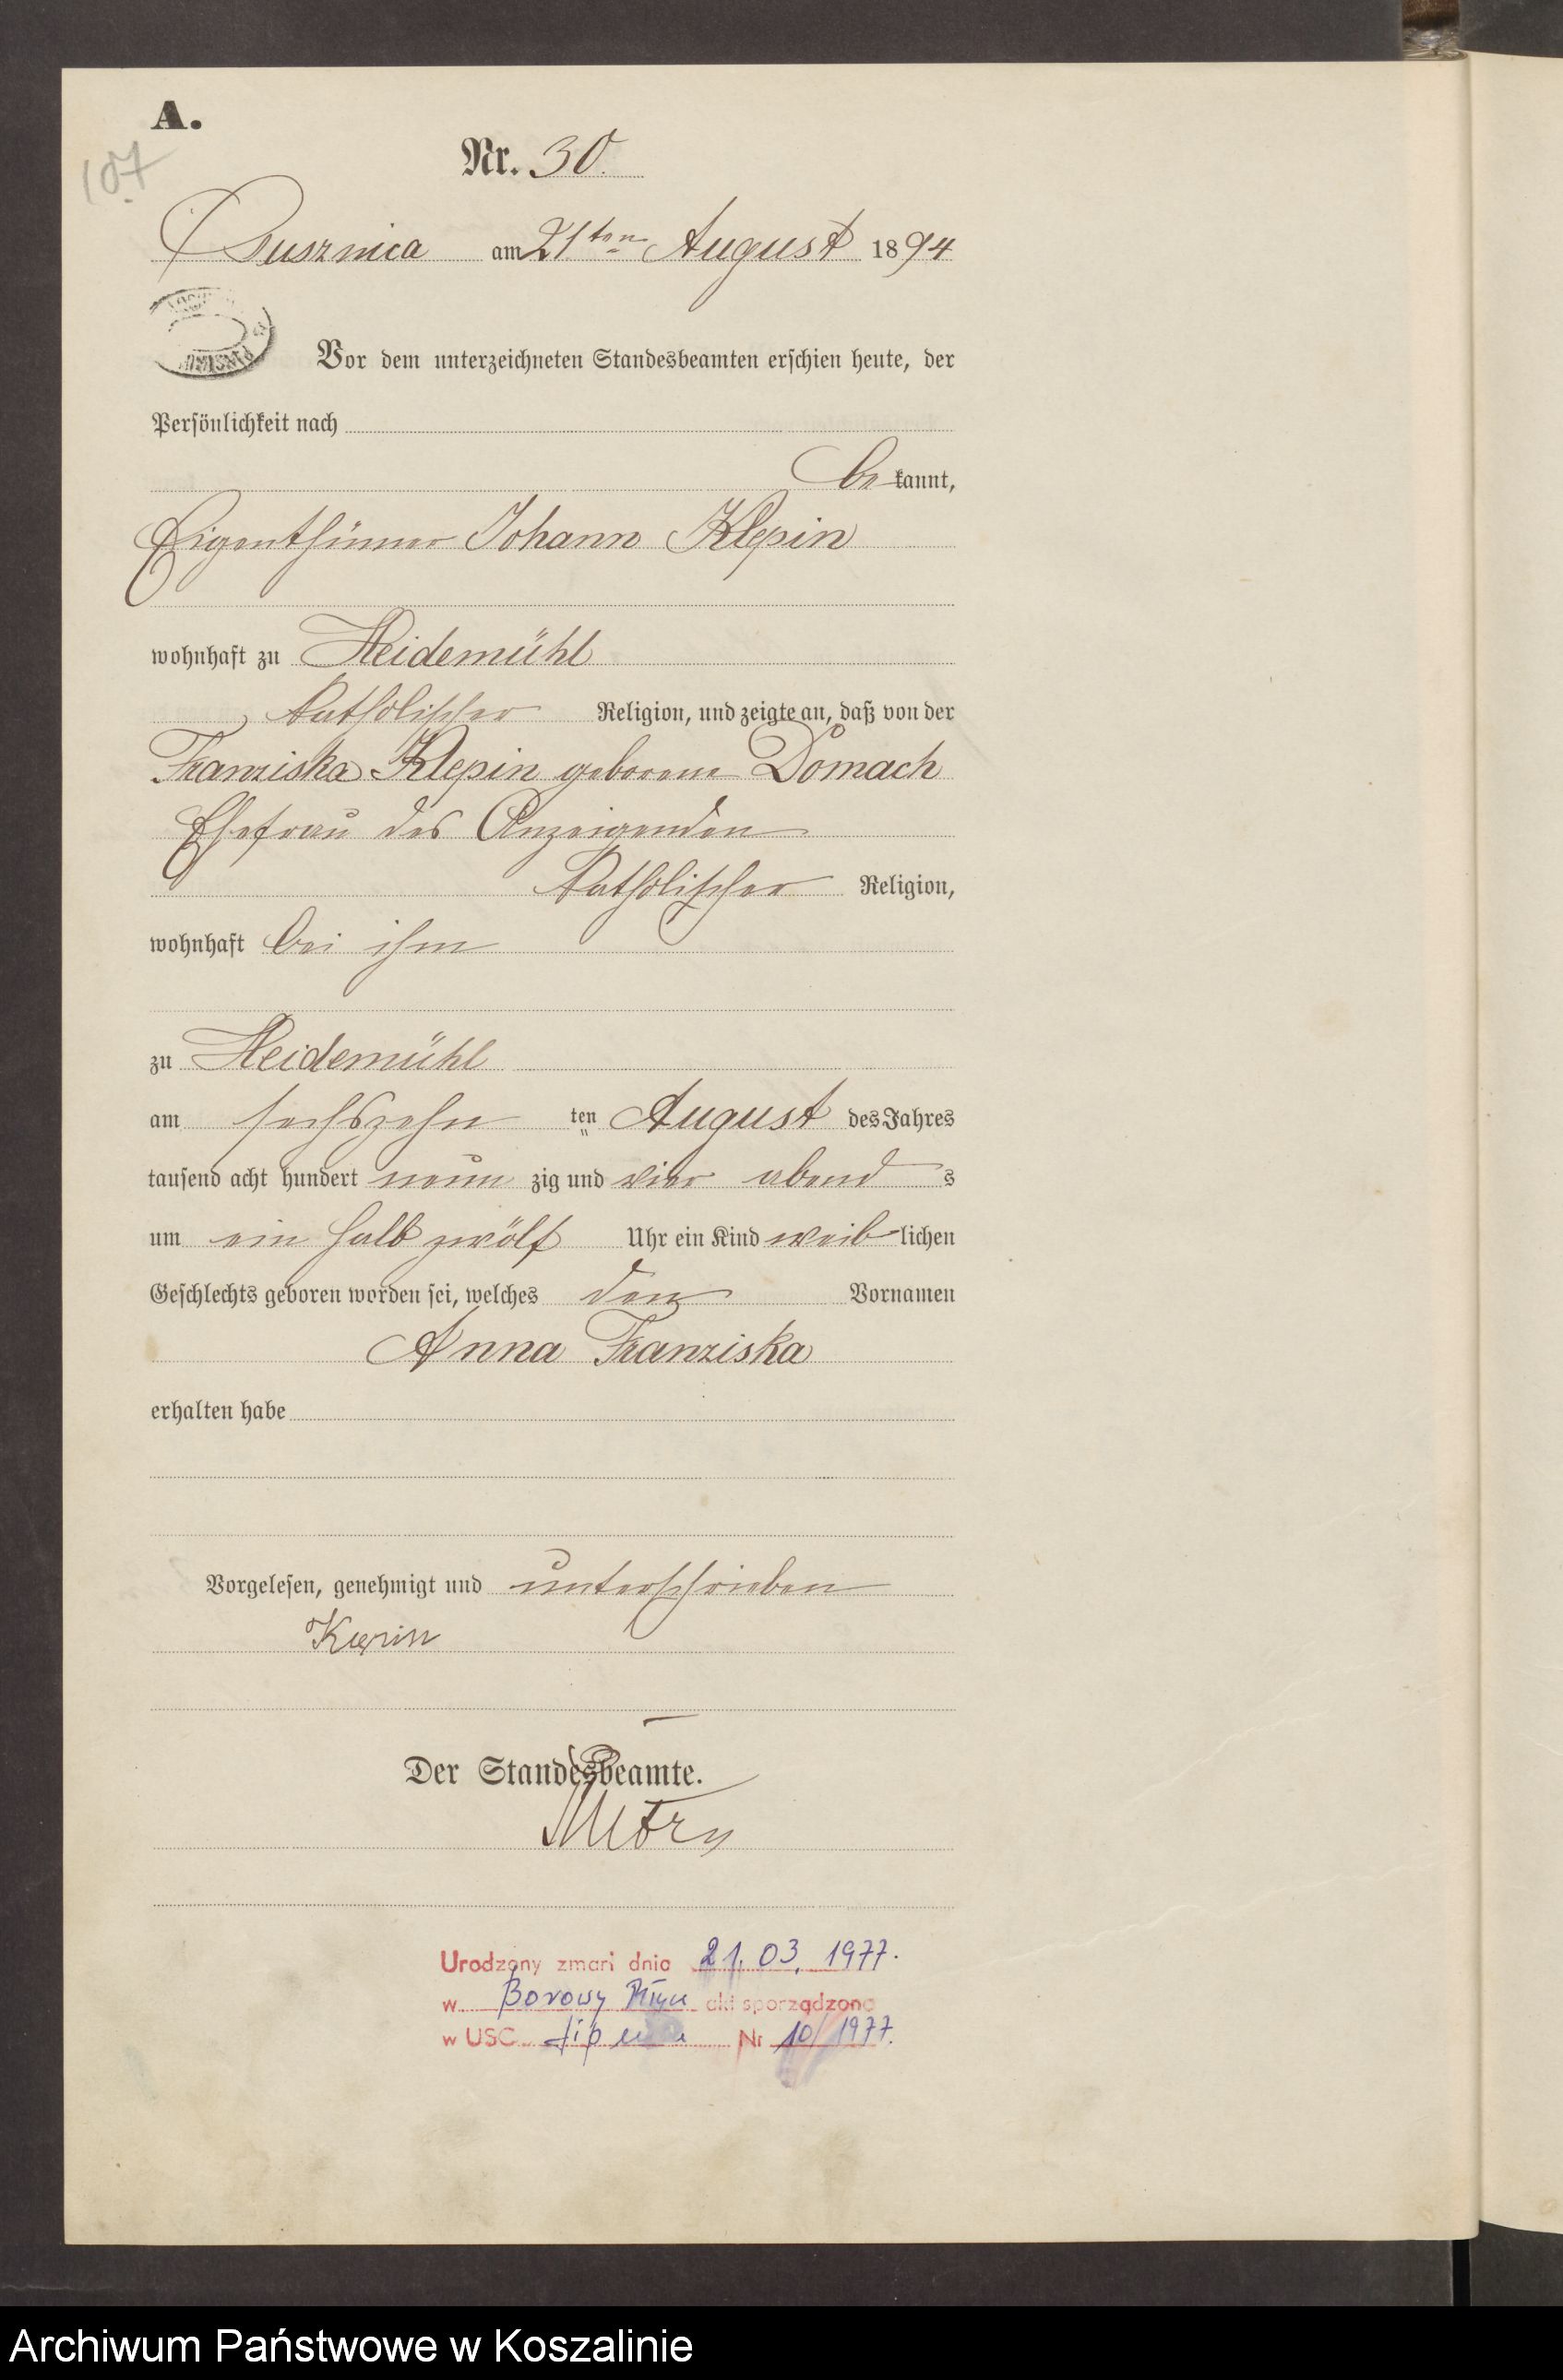 A.
107
Nr. 30.
Pusznica am 21ten August 1894
Vor dem unterzeichneten Standesbeamten erschien heute, der
Persönlichkeit nach
be kannt,
Eigenthümer Johann Klepin
wohnhaft zu Heidemühl
Katholischer Religion, und zeigte an, daß von der
Franziska Klepin geborene Domach
Ehefrau des Anzeigenden
Katholischer Religion,
wohnhaft bei ihm
zu Heidemühl
am sechszehn ten August des Jahres
tausend acht hundert neun zig und vier abend s
um ein halb zwölf Uhr ein Kind weib lichen
Geschlechts geboren worden sei, welches den Vornamen
Anna Franziska
erhalten habe
Vorgelesen, genehmigt und unterschrieben
Der Standesbeamte.
Urodzony zmarł dnia 21.03.1977.
w Borowy Młyn akt sporządzono
w USC Lipnica Nr 10/1977.
Archiwum Państwowe w Koszalinie